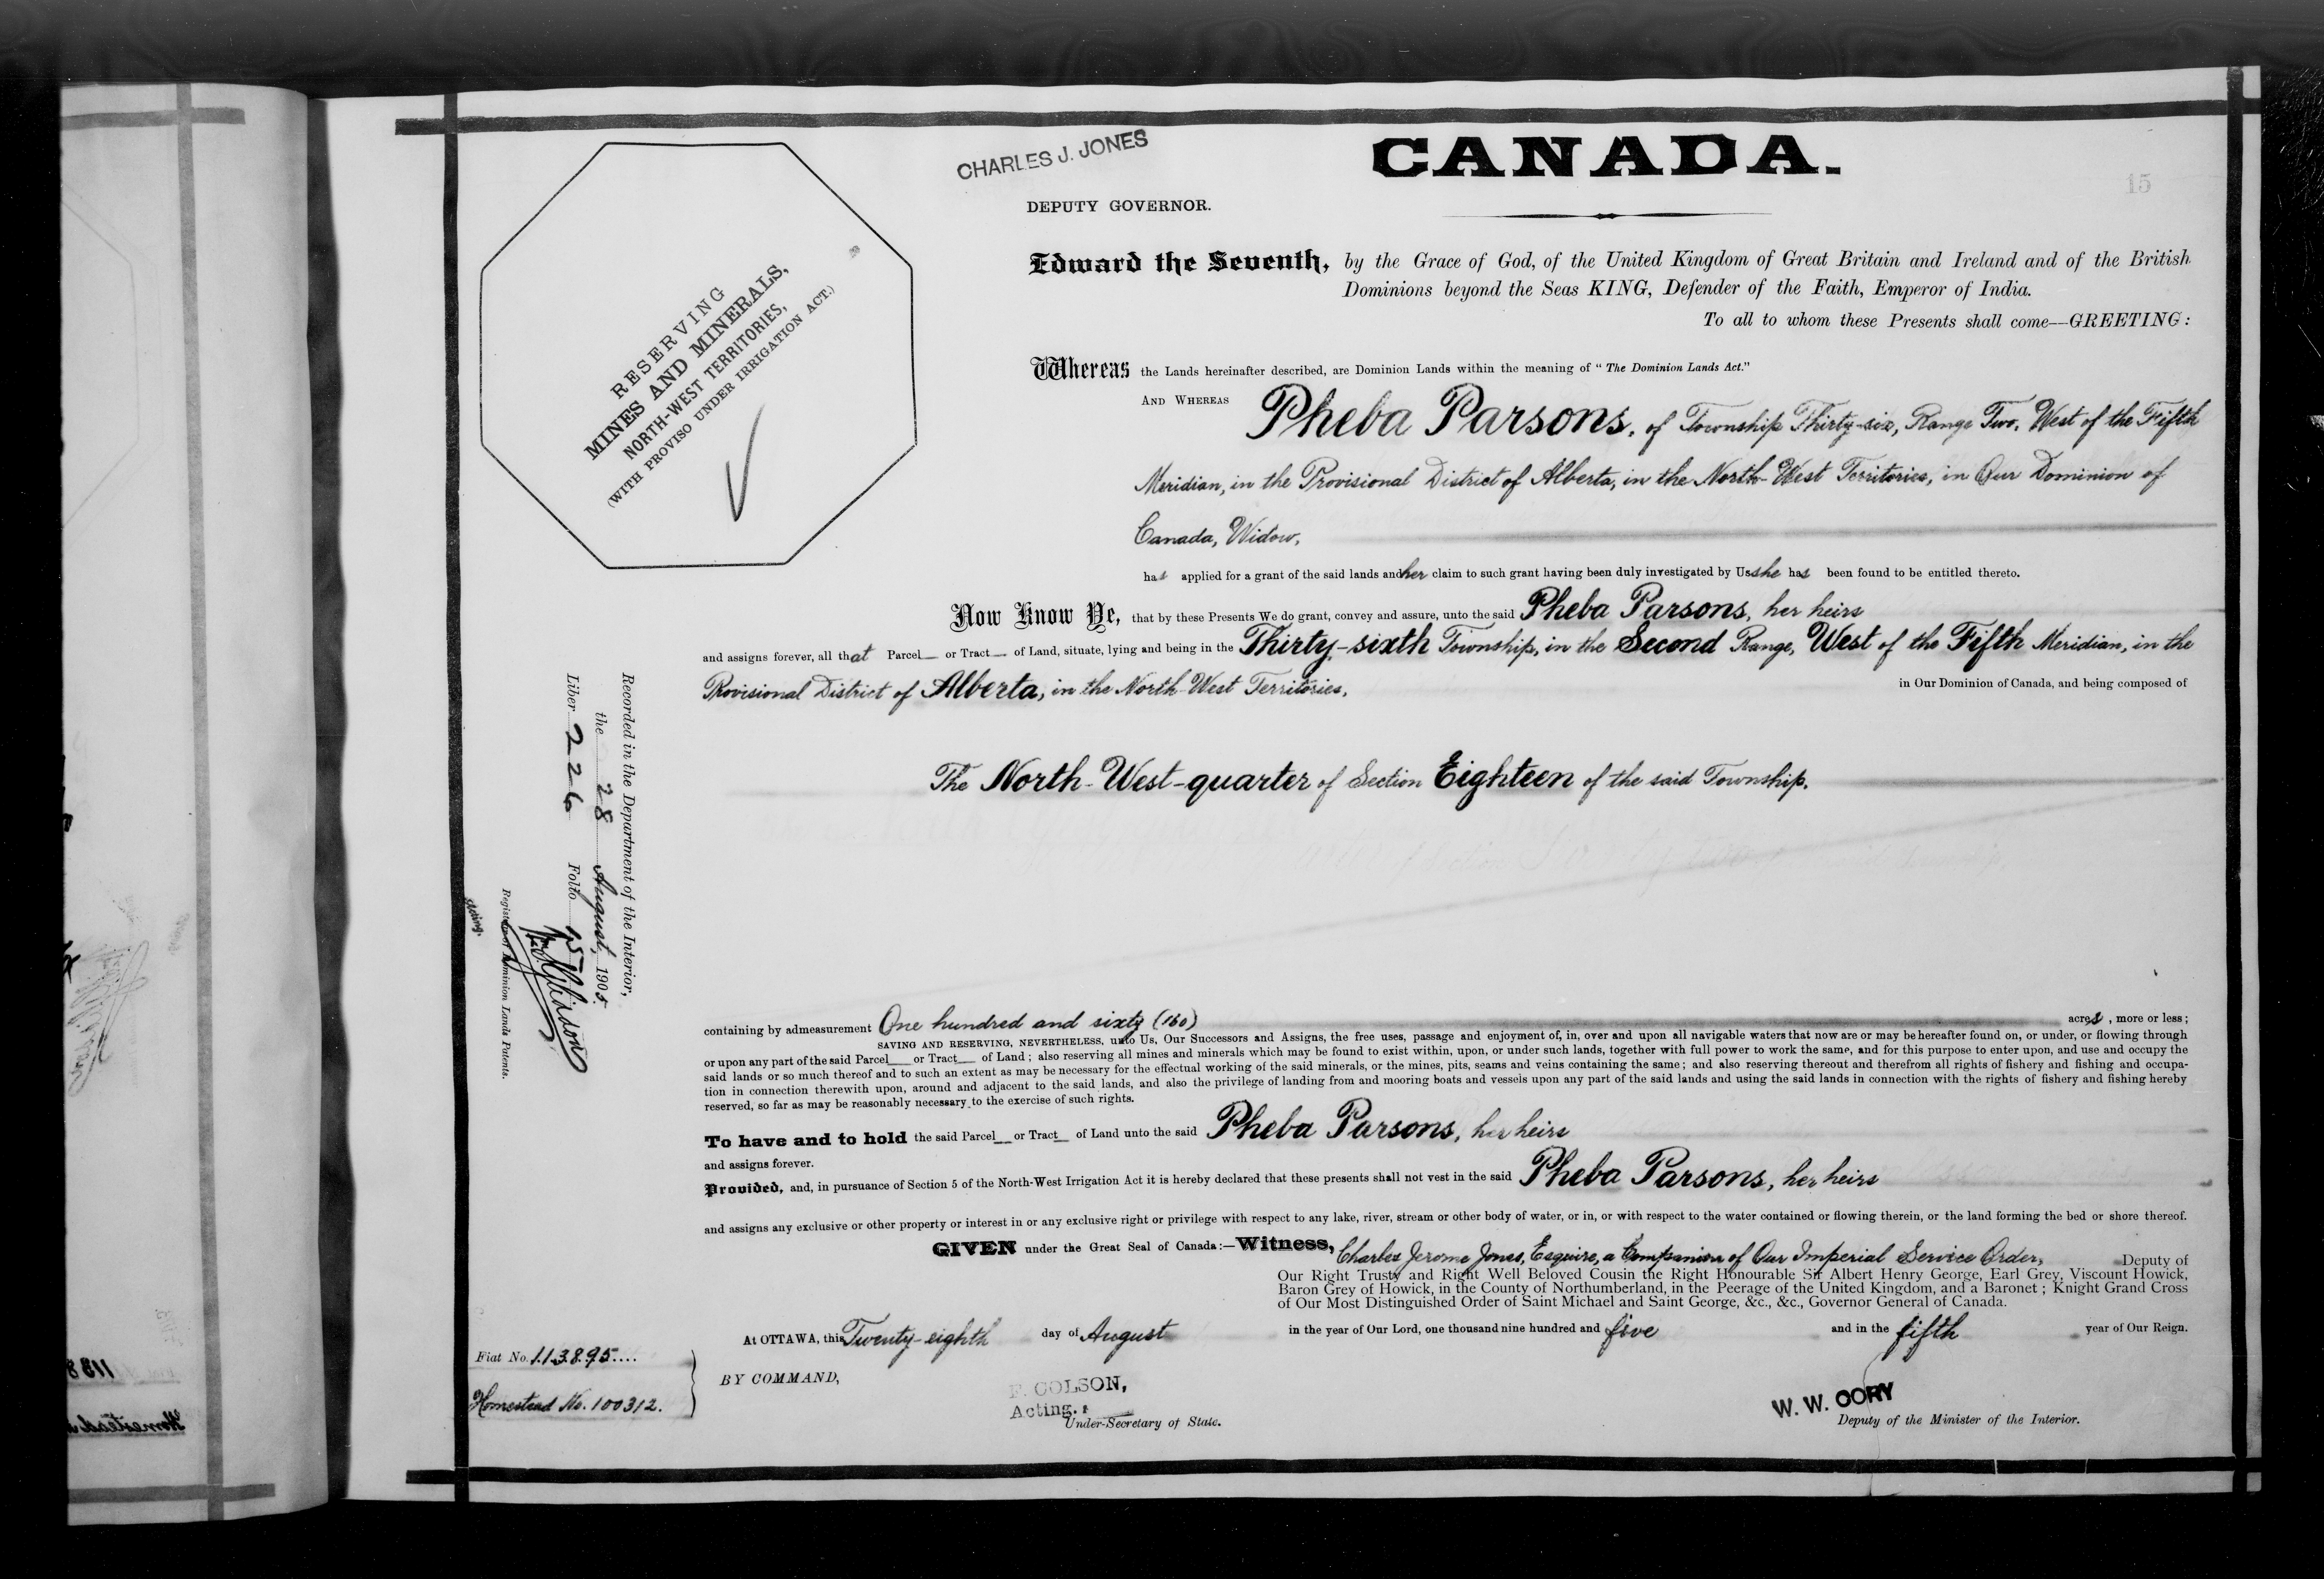 CHARLES J. JONES
CANADA.
15
DEPUTY GOVERNOR.
RESERVING
MINES AND MINERALS,
NORTH-WEST TERRITORIES,
(WITH PROVISO UNDER IRRIGATION ACT.)
Edward the Seventh, by the Grace of God, of the United Kingdom of Great Britain and Ireland and of the British
Dominions beyond the Seas KING, Defender of the Faith, Emperor of India.
To all to whom these Presents shall come—GREETING:
Whereas the Lands hereinafter described, are Dominion Lands within the meaning of "The Dominion Lands Act."
AND WHEREAS Pheba Parsons, of Township Thirty-six, Range Two, West of the Fifth
Meridian, in the Provisional District of Alberta, in the North-West Territories, in Our Dominion of
Canada, Widow,
has applied for a grant of the said lands and her claim to such grant having been duly investigated by Us she has been found to be entitled thereto.
Now Know Ye, that by these Presents We do grant, convey and assure, unto the said Pheba Parsons, her heirs
and assigns forever, all that Parcel or Tract of Land, situate, lying and being in the Thirty-sixth Township, in the Second Range, West of the Fifth Meridian, in the
Provisional District of Alberta, in the North-West Territories, in Our Dominion of Canada, and being composed of
The North-West-quarter of Section Eighteen of the said Township.
Recorded in the Department of the Interior,
the 28 August, 1905.
Liber 226 Folio 15
Registrar of Dominion Lands Patents.
Acting.
containing by admeasurement One hundred and sixty (160) acres, more or less;
SAVING AND RESERVING, NEVERTHELESS, unto Us, Our Successors and Assigns, the free uses, passage and enjoyment of, in, over and upon all navigable waters that now are or may be hereafter found on, or under, or flowing through
or upon any part of the said Parcel or Tract of Land; also reserving all mines and minerals which may be found to exist within, upon, or under such lands, together with full power to work the same, and for this purpose to enter upon, and use and occupy the
said lands or so much thereof and to such an extent as may be necessary for the effectual working of the said minerals, or the mines, pits, seams and veins containing the same; and also reserving thereout and therefrom all rights of fishery and fishing and occupa-
tion in connection therewith upon, around and adjacent to the said lands, and also the privilege of landing from and mooring boats and vessels upon any part of the said lands and using the said lands in connection with the rights of fishery and fishing hereby
reserved, so far as may be reasonably necessary to the exercise of such rights.
To have and to hold the said Parcel or Tract of Land unto the said Pheba Parsons, her heirs
and assigns forever.
Provided, and, in pursuance of Section 5 of the North-West Irrigation Act it is hereby declared that these presents shall not vest in the said Pheba Parsons, her heirs
and assigns any exclusive or other property or interest in or any exclusive right or privilege with respect to any lake, river, stream or other body of water, or in, or with respect to the water contained or flowing therein, or the land forming the bed or shore thereof.
GIVEN under the Great Seal of Canada:—Witness, Charles Jerome Jones, Esquire, a Companion of Our Imperial Service Order, Deputy of
Our Right Trusty and Right Well Beloved Cousin the Right Honourable Sir Albert Henry George, Earl Grey, Viscount Howick,
Baron Grey of Howick, in the County of Northumberland, in the Peerage of the United Kingdom, and a Baronet; Knight Grand Cross
of Our Most Distinguished Order of Saint Michael and Saint George, &c., &c., Governor General of Canada.
At OTTAWA, this Twenty-eighth day of August in the year of Our Lord, one thousand nine hundred and five and in the fifth year of Our Reign.
Fiat No. 113895....
Homestead No. 100312.
BY COMMAND,
P. COLSON,
Acting.
Under-Secretary of State.
W. W. CORY
Deputy of the Minister of the Interior.